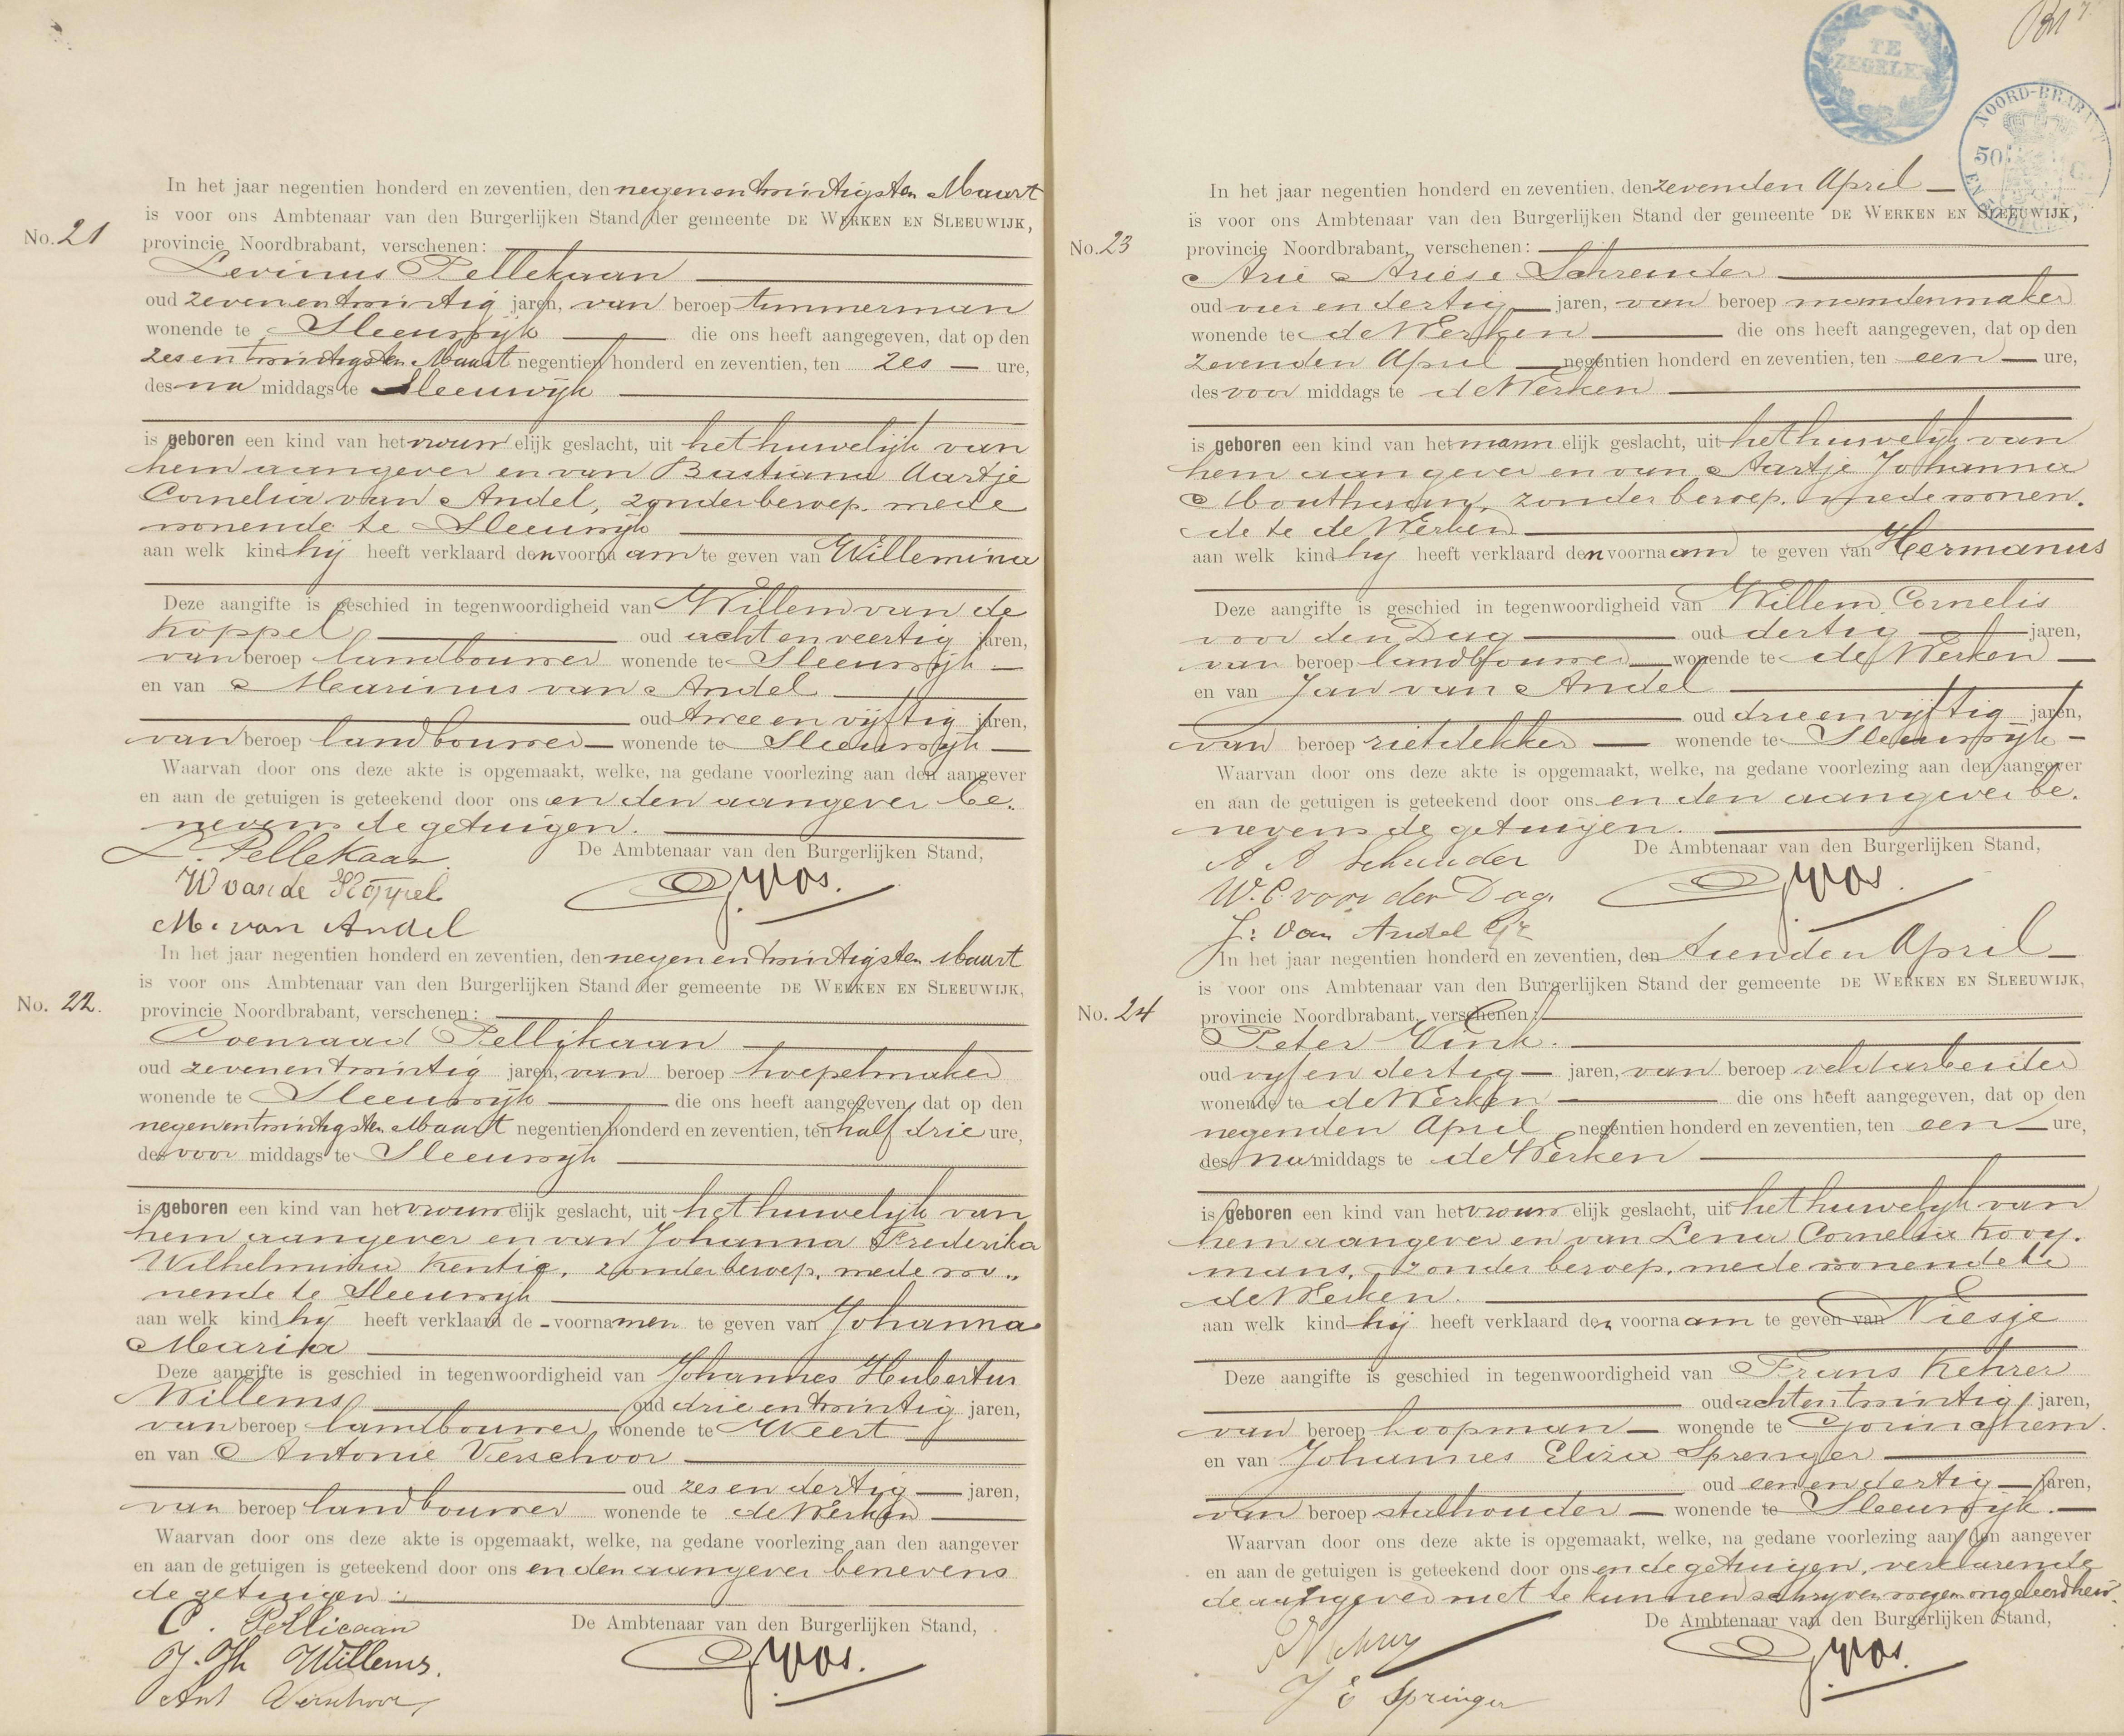 In het jaar negentien honderd en zeventien, den negenentwintigsten Maart
is voor ons Ambtenaar van den Burgerlijken Stand der gemeente DE WERKEN EN SLEEUWIJK,
No. 21
provincie Noordbrabant, verschenen:
Levinus Pellekaan
oud zevenentwintig jaren, van beroep timmerman
wonende te Sleeuwijk die ons heeft aangegeven, dat op den
zesentwintigsten Maart negentien honderd en zeventien, ten zes ure,
des na middags te Sleeuwijk
is geboren een kind van het vrouwelijk geslacht, uit het huwelijk van
hem aangever en van Bastiana Aartje
Cornelia van Andel, zonder beroep, mede
wonende te Sleeuwijk
aan welk kind hij heeft verklaard den voornaam te geven van Willemina
Deze aangifte is geschied in tegenwoordigheid van Willem van de
Koppel oud achtenveertig jaren,
van beroep landbouwer wonende te Sleeuwijk
en van Marinus van Andel
oud tweeenvijftig jaren,
van beroep landbouwer wonende te Sleeuwijk
Waarvan door ons deze akte is opgemaakt, welke, na gedane voorlezing aan den aangever
en aan de getuigen is geteekend door ons en den aangever be-
nevens de getuigen.
De Ambtenaar van den Burgerlijken Stand,
L. Pellekaan
W van de Koppel
GVos.
M. van Andel
In het jaar negentien honderd en zeventien, den negenentwintigsten Maart
is voor ons Ambtenaar van den Burgerlijken Stand der gemeente DE WERKEN EN SLEEUWIJK,
No. 22.
provincie Noordbrabant, verschenen:
Coenraad Pellikaan
oud zevenentwintig jaren, van beroep hoepelmaker
wonende te Sleeuwijk die ons heeft aangegeven, dat op den
negenentwintigsten Maart negentien honderd en zeventien, ten half drie ure,
des voor middags te Sleeuwijk
is geboren een kind van het vrouwelijk geslacht, uit het huwelijk van
hem aangever en van Johanna Frederika
Wilhelmina Kentie, zonder beroep, mede wo-
nende te Sleeuwijk
aan welk kind hij heeft verklaard de voornamen te geven van Johanna
Maria
Deze aangifte is geschied in tegenwoordigheid van Johannes Hubertus
Willems oud drieentwintig jaren,
van beroep landbouwer wonende te Weert
en van Antonie Verschoor
oud zesendertig jaren,
van beroep landbouwer wonende te de Werken
Waarvan door ons deze akte is opgemaakt, welke, na gedane voorlezing aan den aangever
en aan de getuigen is geteekend door ons en den aangever benevens
de getuigen.
De Ambtenaar van den Burgerlijken Stand,
C. Pellicaan
J. Jh Willems.
GVos.
Ant Verschoor
TE
ZEGELEN
NOORD-BRABANT
50 C.
In het jaar negentien honderd en zeventien, den zevenden April
is voor ons Ambtenaar van den Burgerlijken Stand der gemeente DE WERKEN EN SLEEUWIJK,
No. 23
provincie Noordbrabant, verschenen:
Arie Ariese Schreuder
oud vierendertig jaren, van beroep mandenmaker
wonende te de Werken die ons heeft aangegeven, dat op den
zevenden April negentien honderd en zeventien, ten een ure,
des voor middags te de Werken
is geboren een kind van het mannelijk geslacht, uit het huwelijk van
hem aangever en van Aartje Johanna
Mouthaan, zonder beroep, mede wonen-
de te de Werken
aan welk kind hij heeft verklaard den voornaam te geven van Hermanus
Deze aangifte is geschied in tegenwoordigheid van Willem Cornelis
voor den Dag oud dertig jaren,
van beroep landbouwer wonende te de Werken
en van Jan van Andel
oud drieenvijftig jaren,
van beroep rietdekker wonende te Sleeuwijk
Waarvan door ons deze akte is opgemaakt, welke, na gedane voorlezing aan den aangever
en aan de getuigen is geteekend door ons en den aangever be-
nevens de getuigen.
De Ambtenaar van den Burgerlijken Stand,
A A Schreuder
W. C. voor den Dag.
GVos.
J: van Andel
In het jaar negentien honderd en zeventien, den tienden April
is voor ons Ambtenaar van den Burgerlijken Stand der gemeente DE WERKEN EN SLEEUWIJK,
No. 24
provincie Noordbrabant, verschenen:
Peter Vink.
oud vijfendertig jaren, van beroep veldarbeider
wonende te de Werken die ons heeft aangegeven, dat op den
negenden April negentien honderd en zeventien, ten een ure,
des na middags te de Werken
is geboren een kind van het vrouwelijk geslacht, uit het huwelijk van
hem aangever en van Lena Cornelia Kooy-
mans, zonder beroep, mede wonende te
de Werken.
aan welk kind hij heeft verklaard den voornaam te geven van Niesje
Deze aangifte is geschied in tegenwoordigheid van Frans Kehrer
oud achtentwintig jaren,
van beroep koopman wonende te Gorinchem.
en van Johannes Eliza Sprenger
oud eenendertig jaren,
van beroep stalhouder wonende te Sleeuwijk.
Waarvan door ons deze akte is opgemaakt, welke, na gedane voorlezing aan den aangever
en aan de getuigen is geteekend door ons en de getuigen, verklarende
de aangever niet te kunnen schrijven wegens ongeleerdheid.
De Ambtenaar van den Burgerlijken Stand,
GVos.
J E Sprenger